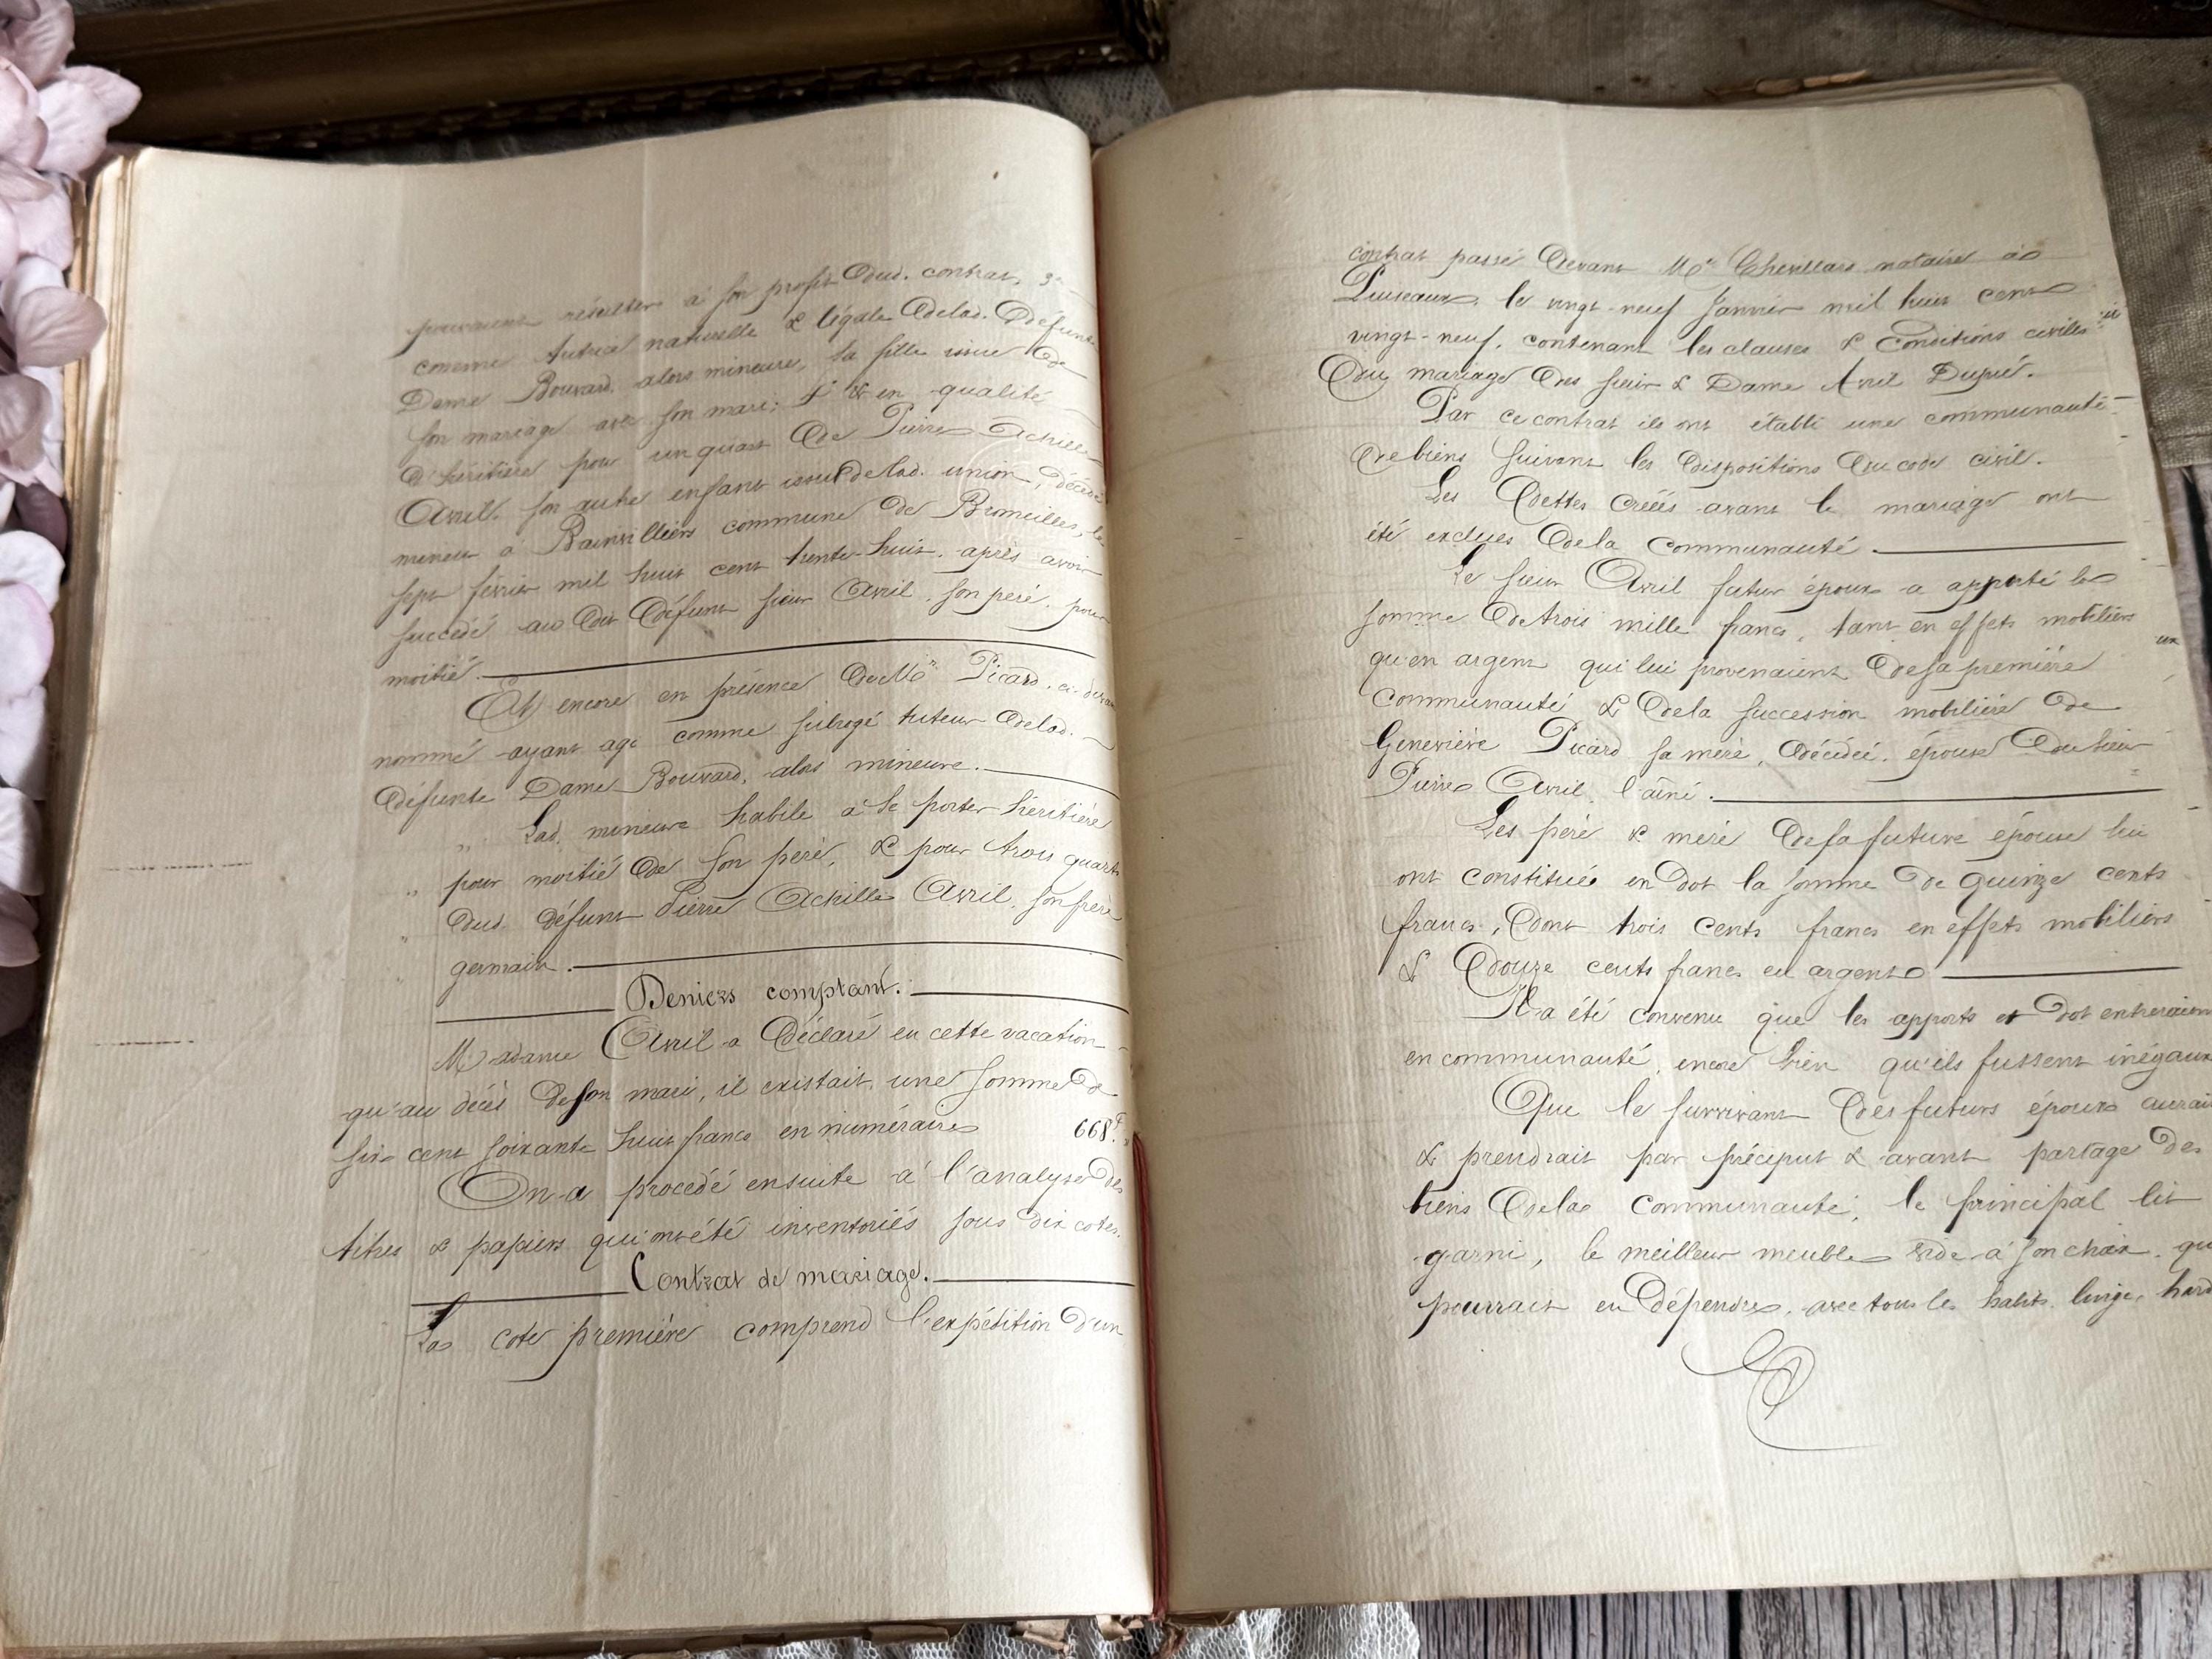 pouvaient résulter à son profit dud. contrat, 3°
comme tutrice naturelle & légale de lad. défunte
Dame Bouvard, alors mineure, sa fille issue de
son mariage avec son mari; & en qualité
d'héritière pour un quart de Pierre Achille
Avril, son autre enfant issu de lad. union, décédé
mineur à Bainvilliers commune de Bromeilles, le
sept février mil huit cent trente-huit, après avoir
succédé au dit défunt sieur Avril, son père, pour
moitié.
Et encore en présence de Mr Picard, ci-devant
nommé ayant agi comme subrogé tuteur de lad.
défunte Dame Bouvard, alors mineure.
„ Lad. mineure habile à se porter héritière
„ pour moitié de son père, & pour trois quarts
„ dud. défunt Pierre Achille Avril, son frère
„ germain.
Deniers comptant.
Madame Avril a déclaré en cette vacation
qu'au décès de son mari, il existait une somme de
six cent soixante huit francs en numéraire 668.f „
On a procédé ensuite à l'analyse des
titres & papiers qui ont été inventoriés sous dix cotes.
Contrat de mariage.
La cote première comprend l'expédition d'un
contrat passé devant Me Chevillard notaire à
Puiseaux, le vingt-neuf Janvier mil huit cent
vingt-neuf, contenant les clauses & conditions civiles
du mariage des sieur & Dame Avril Dupré.
Par ce contrat ils ont établi une communauté
de biens suivant les dispositions du code civil.
Les dettes créées avant le mariage ont
été exclues de la communauté.
Le sieur Avril futur époux a apporté la
somme de trois mille francs, tant en effets mobiliers
qu'en argent qui lui provenaient de sa première
communauté & de la succession mobilière de
Geneviève Picard sa mère, décédée, épouse du sieur
Pierre Avril, l'aîné.
Les père & mère de la future épouse lui
ont constitué en dot la somme de quinze cents
francs, dont trois cents francs en effets mobiliers
& douze cents francs en argent
Il a été convenu que les apports et dot entreraient
en communauté, encore bien qu'ils fussent inégaux
Que le survivant des futurs époux aurait
& prendrait par préciput & avant partage des
biens de la communauté, le principal lit
garni, le meilleur meuble vide à son choix, qui
pourrait en dépendre, avec tous les habits, linge, hard